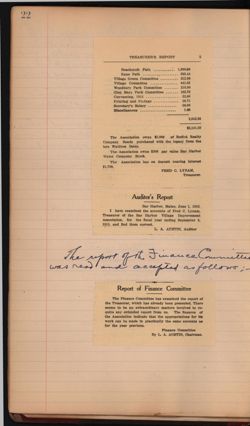 22
TREASURER'S REPORT 5
Beachcroft Path
Kane Path
Village Green Committee
Village Committee
Woodbury Park Committee
Glen Mary Park Committee
Canvassing, 1912
Printing and Notices
Secretary's Salary
Miscellaneous
The Association owns $1,000 of
Company Bonds purchased with the legacy from the
late Waldron Bates.
The Association owns $200 par value Bar Harbor
Water Company Stock.
The Association has on deposit bearing interest
FRED C. LYNAM,
Treasurer.
Auditor's Report
Bar Harbor, Maine, June 1, 1913.
I have examined the accounts of Fred C. Lynam,
Treasurer of the Bar Harbor Village Improvement
Association, for the fiscal year ending September 1,
and find them correct.
L. A. AUSTIN, Auditor
The report of the Finance Committee
was read and accepted as follows;-
Report of Finance Committee
The Finance Committee has examined the report of
the Treasurer, which has already been presented. There
seems to be no extraordinary matters involved to re-
quire any extended report from us. The finances of
the Association indicate that the appropriations for its
work can be made in practically the same amounts as
for the year previous.
Finance Committee
By L. A. AUSTIN, Chairman.